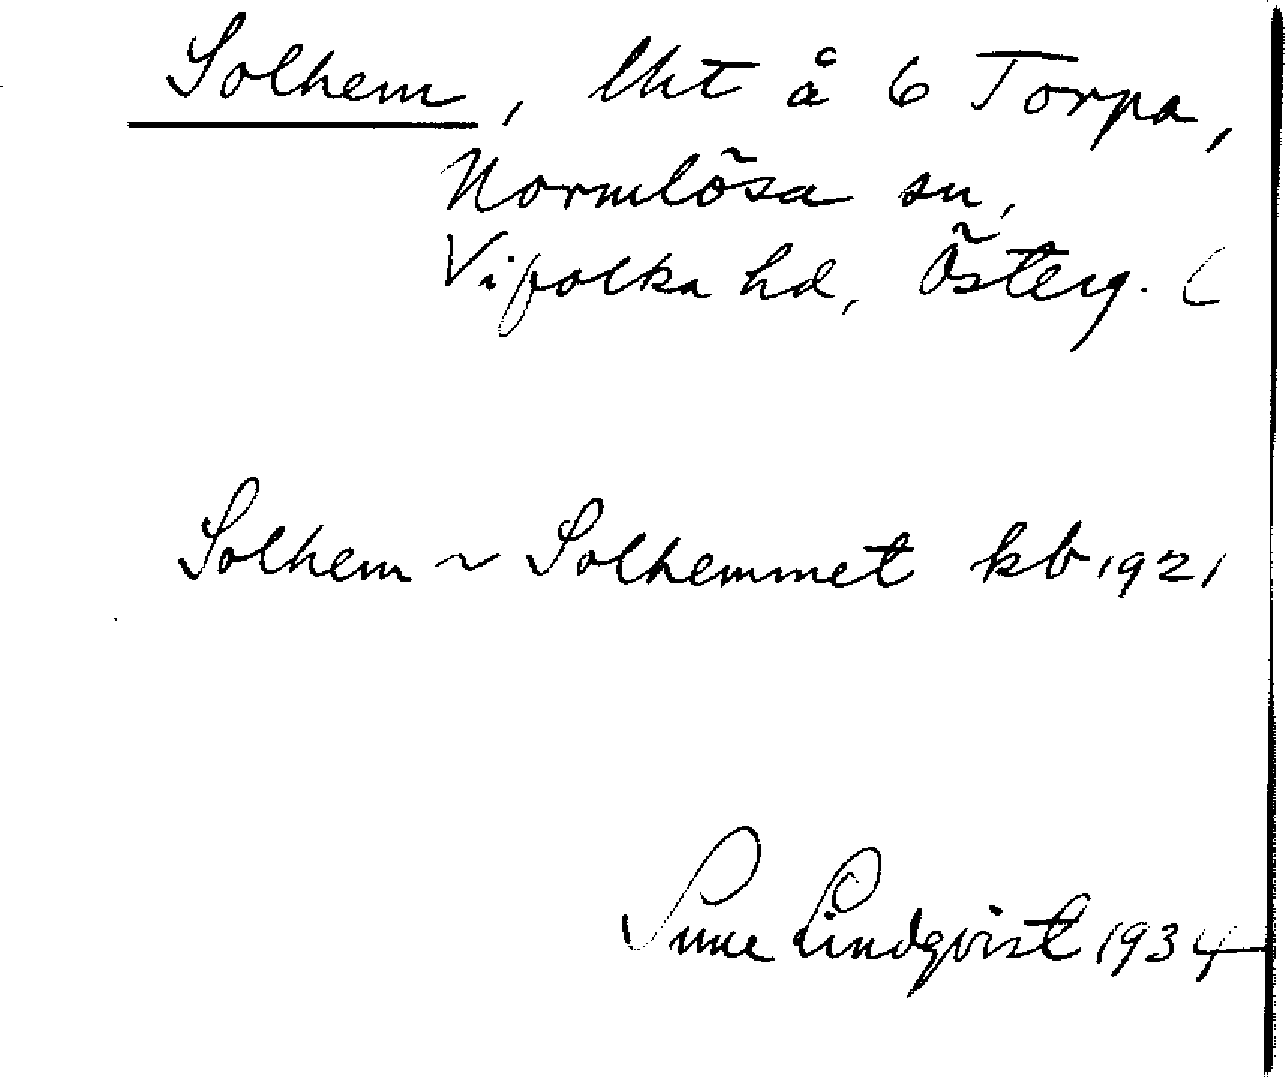 Solhem, lht å 6 Torpa,
Normlösa sn,
Vifolka hd, Österg. (
Solhem ~ Solhemmet kb 1921
Sune Lindqvist 1934